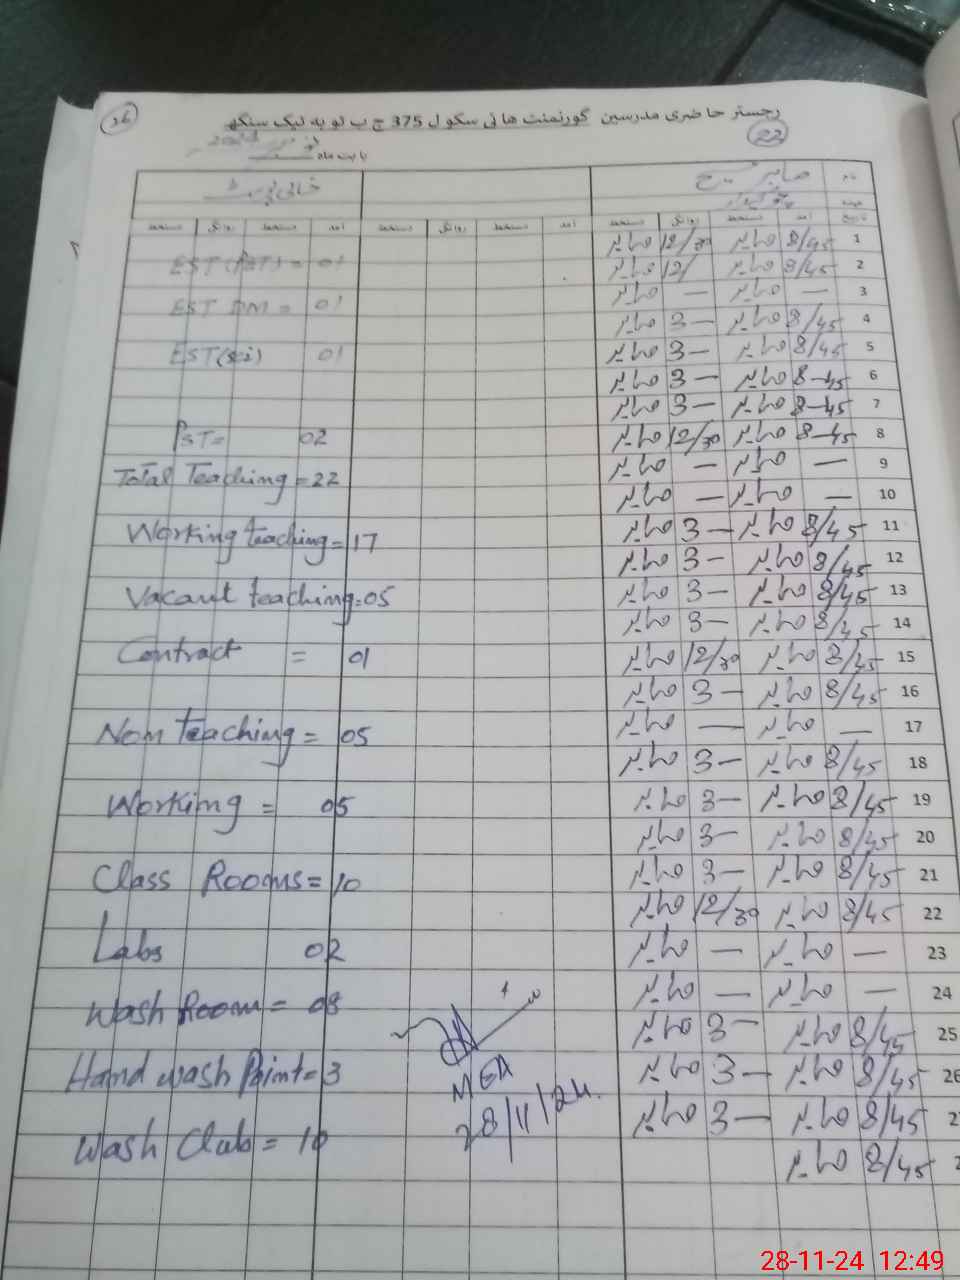 26
رجسٹر حاضری مدرسین گورنمنٹ ہائی سکول 375 ج ب ٹوبہ ٹیک سنگھ
22
بابت ماہ 2024
نام صابر مسیح خالی
عہدہ
تاریخ آمد دستخط روانگی دستخط آمد دستخط روانگی دستخط آمد دستخط روانگی دستخط
1 8/45 صابر 12/30 صابر
EST (PET) = 01
2 8/45 صابر 12/ صابر
3 — صابر — صابر
EST DM = 01
4 8/45 صابر 3— صابر
EST (sci) 01
5 8/45 صابر 3— صابر
6 8-45 صابر 3— صابر
7 8-45 صابر 3— صابر
PST= 02
8 8-45 صابر 12/30 صابر
9 — صابر — صابر
Total Teaching = 22
10 — صابر — صابر
Working teaching = 17
11 8/45 صابر 3— صابر
12 8/45 صابر 3— صابر
Vacant teaching = 05
13 8/45 صابر 3— صابر
14 8/45 صابر 3— صابر
Contract = 01
15 8/45 صابر 12/30 صابر
16 8/45 صابر 3— صابر
Non teaching = 05
17 — صابر — صابر
18 8/45 صابر 3— صابر
Working = 05
19 8/45 صابر 3— صابر
20 8/45 صابر 3— صابر
Class Rooms = 10
21 8/45 صابر 3— صابر
22 8/45 صابر 12/30 صابر
Labs 02
23 — صابر — صابر
24 — صابر — صابر
Wash Room = 08
25 8/45 صابر 3— صابر
Hand wash Point = 3
26 8/45 صابر 3— صابر
MEA
28/11/24
2 8/45 صابر 3— صابر
Wash Club = 10
2 8/45 صابر
28-11-24 12:49